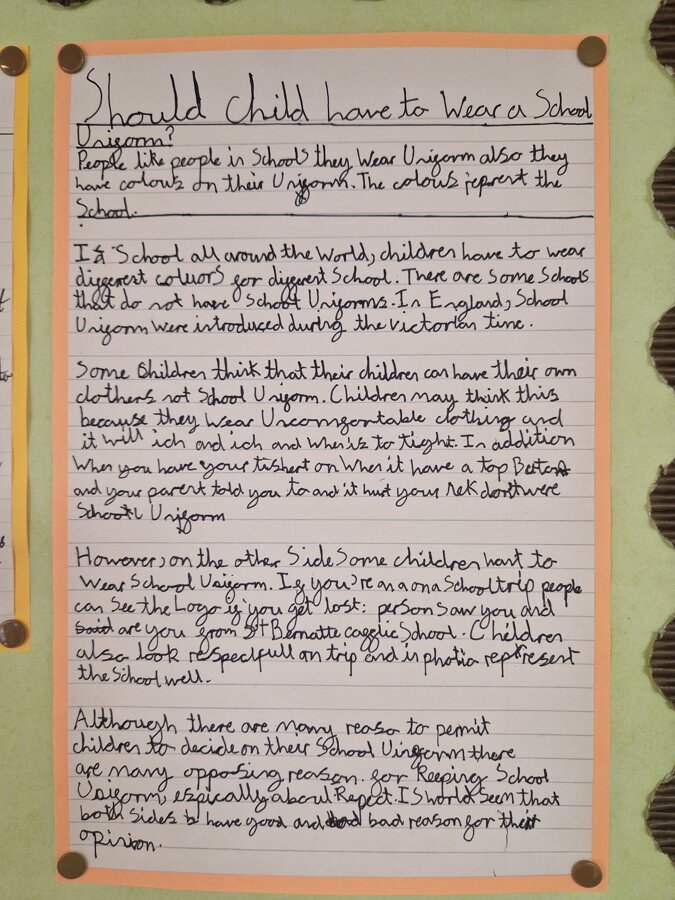 Should Child have to Wear a School
Unigorm?
People like people in Schools they Wear Unigorm also they
have colous on their Unigorm. The colous reprent the
School.
If School all around the World, children have to wear
diggerent coluors gor diggerent School. There are some Schools
that do not have School Unigorms. In England, School
Unigorm were introduced during the victorian time.
Some Children think that their children can have their own
clothers not School Unigorm. Children may think this
because they wear Uncomgortable clothing and
it will ich and ich and when is to tight. In addition
When you have your tishert on When it have a top Button
and your parent told you to and it hurt your nek dont were
School Unigorm
However, on the other Side Some children want to
Wear School Unigorm. Ig you're on a School trip people
can see the Logo ig you get lost: person saw you and
said are you grom St Bernatte School. Children
also look respecfull on trip and in photia represent
the School well.
Although there are many reaso to permit
children to decide on their School Unigorm there
are many opposing reason gor Keeping School
Unigorm, espically about Repect. I Seem that
both Sides have good and bad reason gor their
opinion.